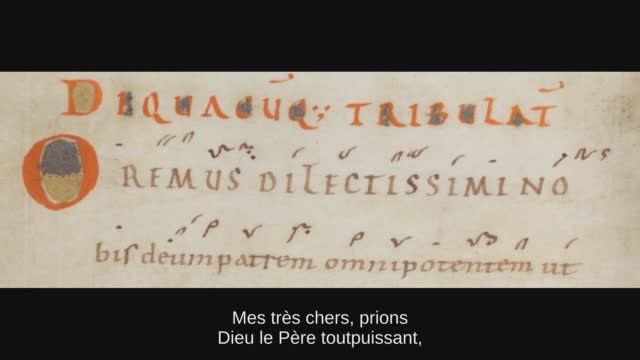 DE QUACŪQ; TRIBULAT̄
OREMUS DILECTISSIMI NO
bis deum patrem omnipotentem ut
Mes très chers, prions
Dieu le Père toutpuissant,